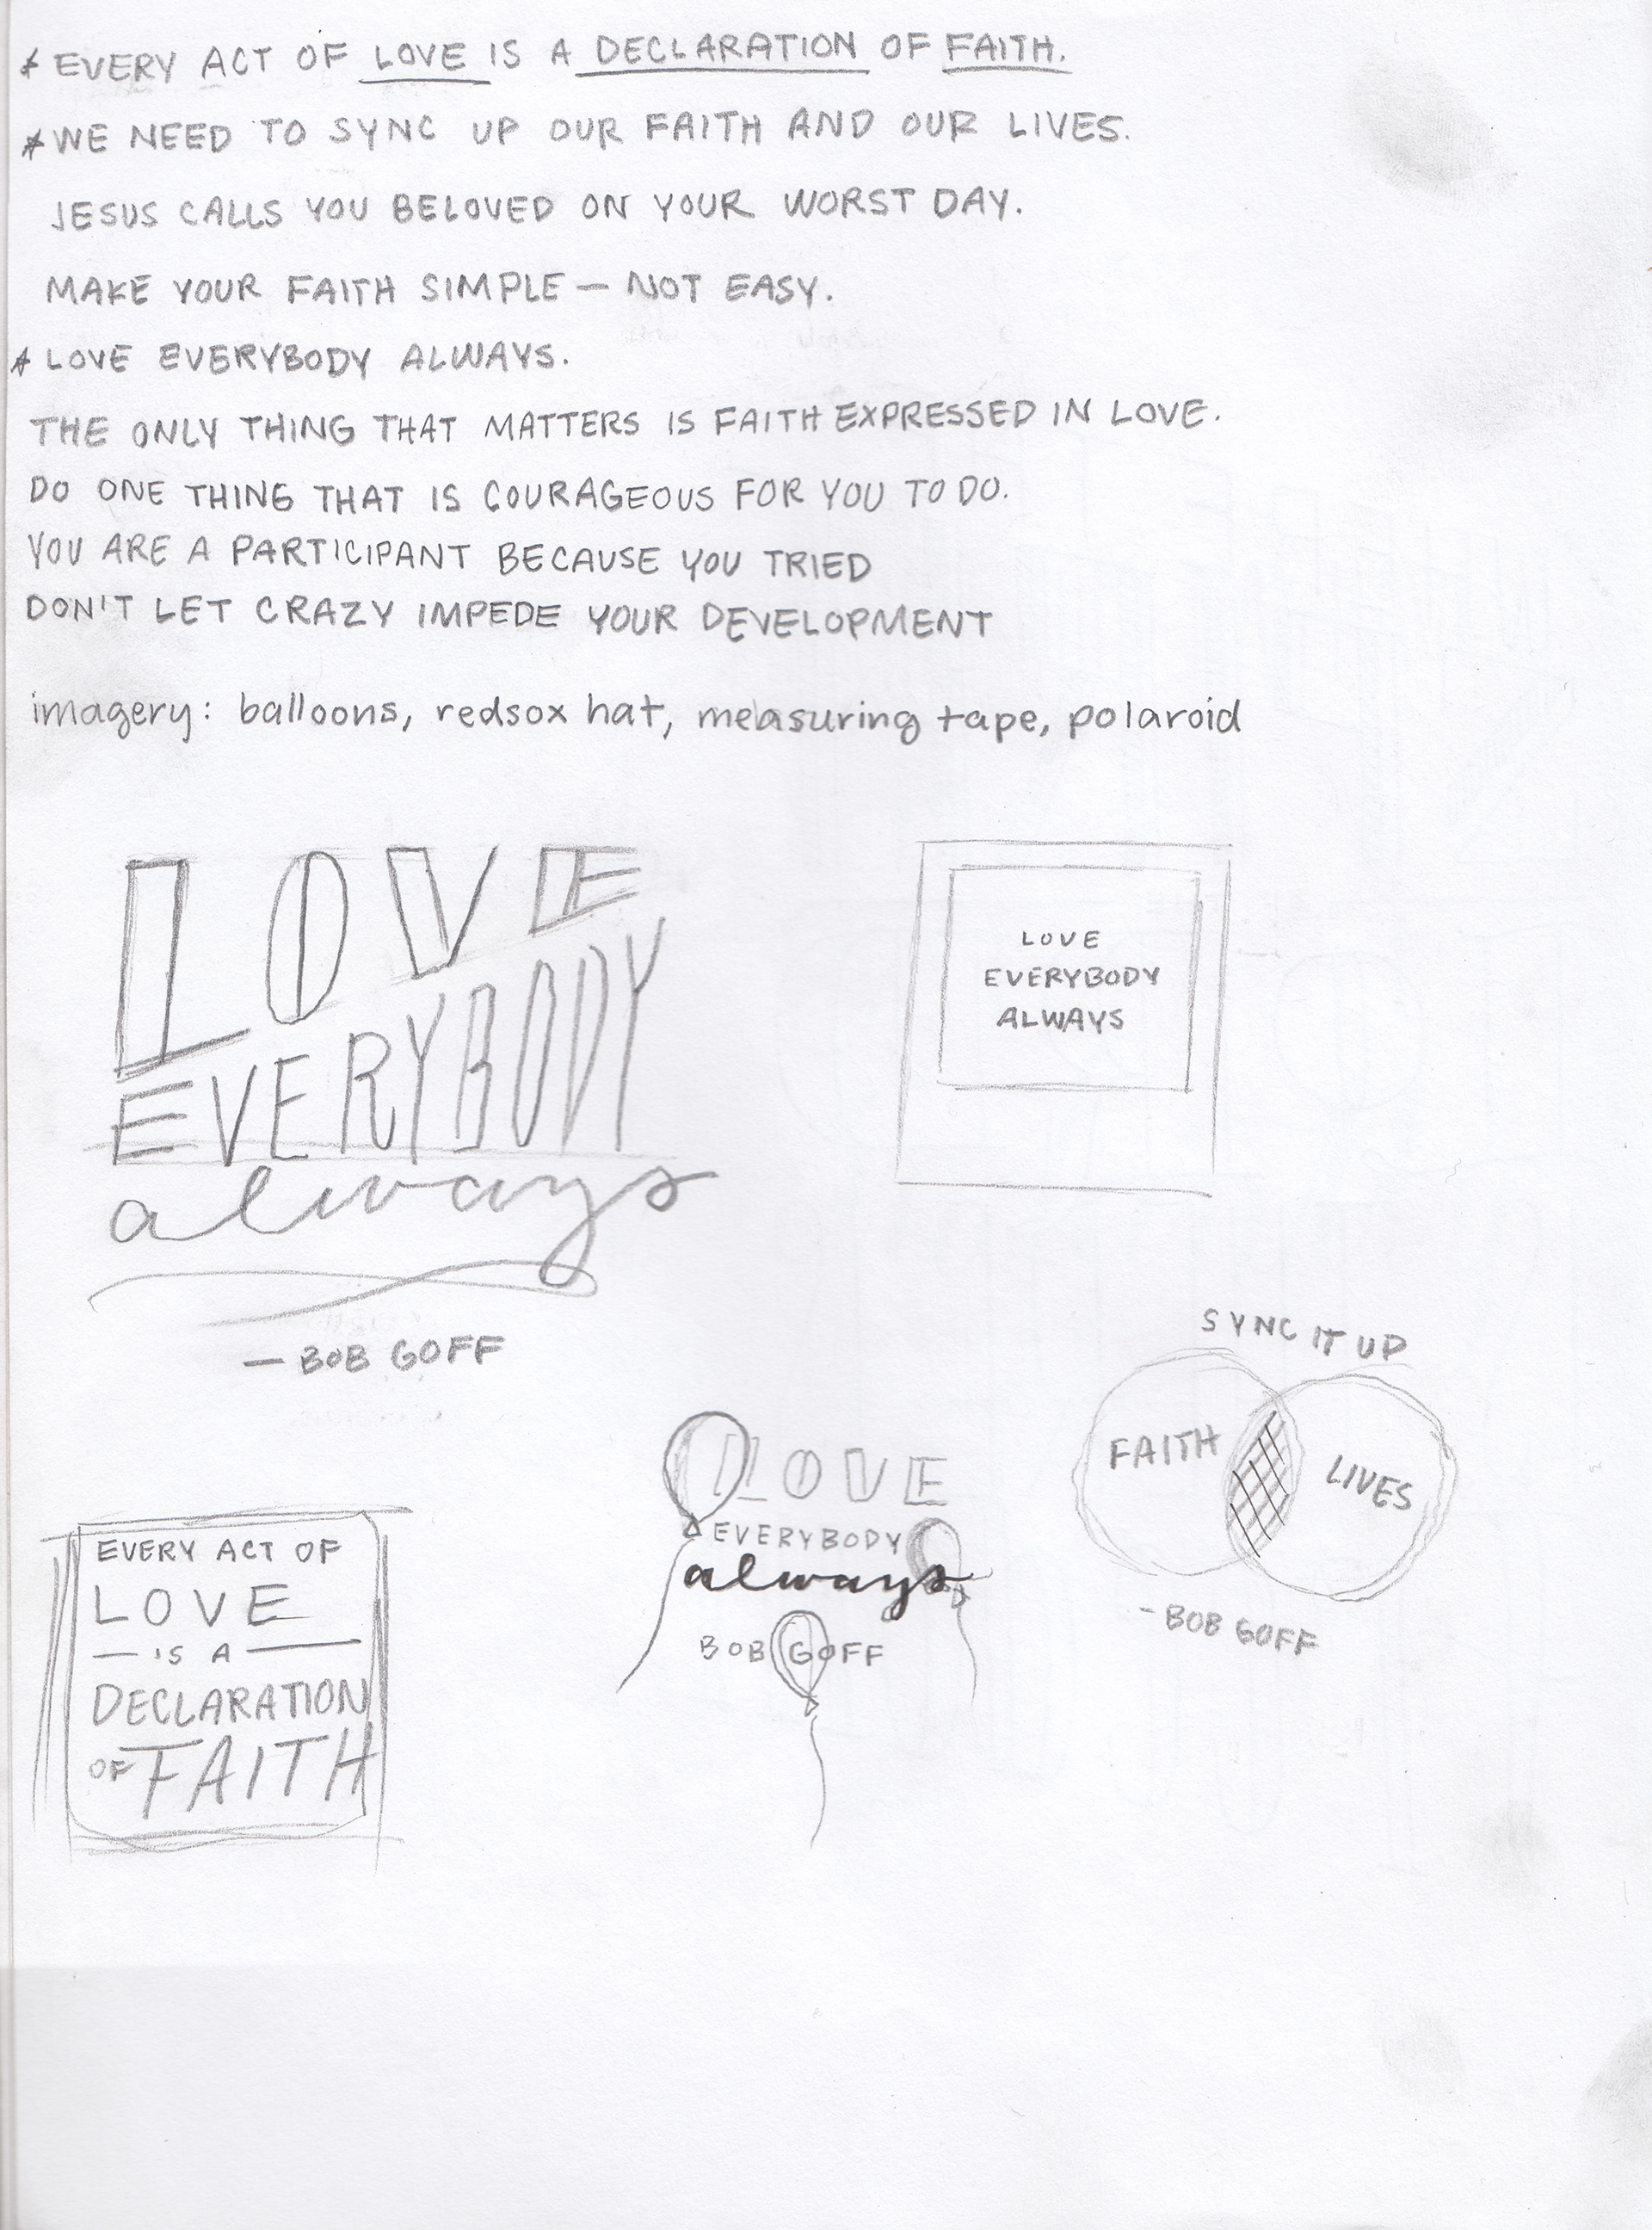 * EVERY ACT OF LOVE IS A DECLARATION OF FAITH.
* WE NEED TO SYNC UP OUR FAITH AND OUR LIVES.
JESUS CALLS YOU BELOVED ON YOUR WORST DAY.
MAKE YOUR FAITH SIMPLE — NOT EASY.
* LOVE EVERYBODY ALWAYS.
THE ONLY THING THAT MATTERS IS FAITH EXPRESSED IN LOVE.
DO ONE THING THAT IS COURAGEOUS FOR YOU TO DO.
YOU ARE A PARTICIPANT BECAUSE YOU TRIED
DON'T LET CRAZY IMPEDE YOUR DEVELOPMENT
imagery: balloons, redsox hat, measuring tape, polaroid
LOVE
EVERYBODY
always
— BOB GOFF
LOVE
EVERYBODY
ALWAYS
SYNC IT UP
FAITH
LIVES
- BOB GOFF
LOVE
EVERYBODY
always
BOB GOFF
EVERY ACT OF
LOVE
— IS A —
DECLARATION
OF FAITH